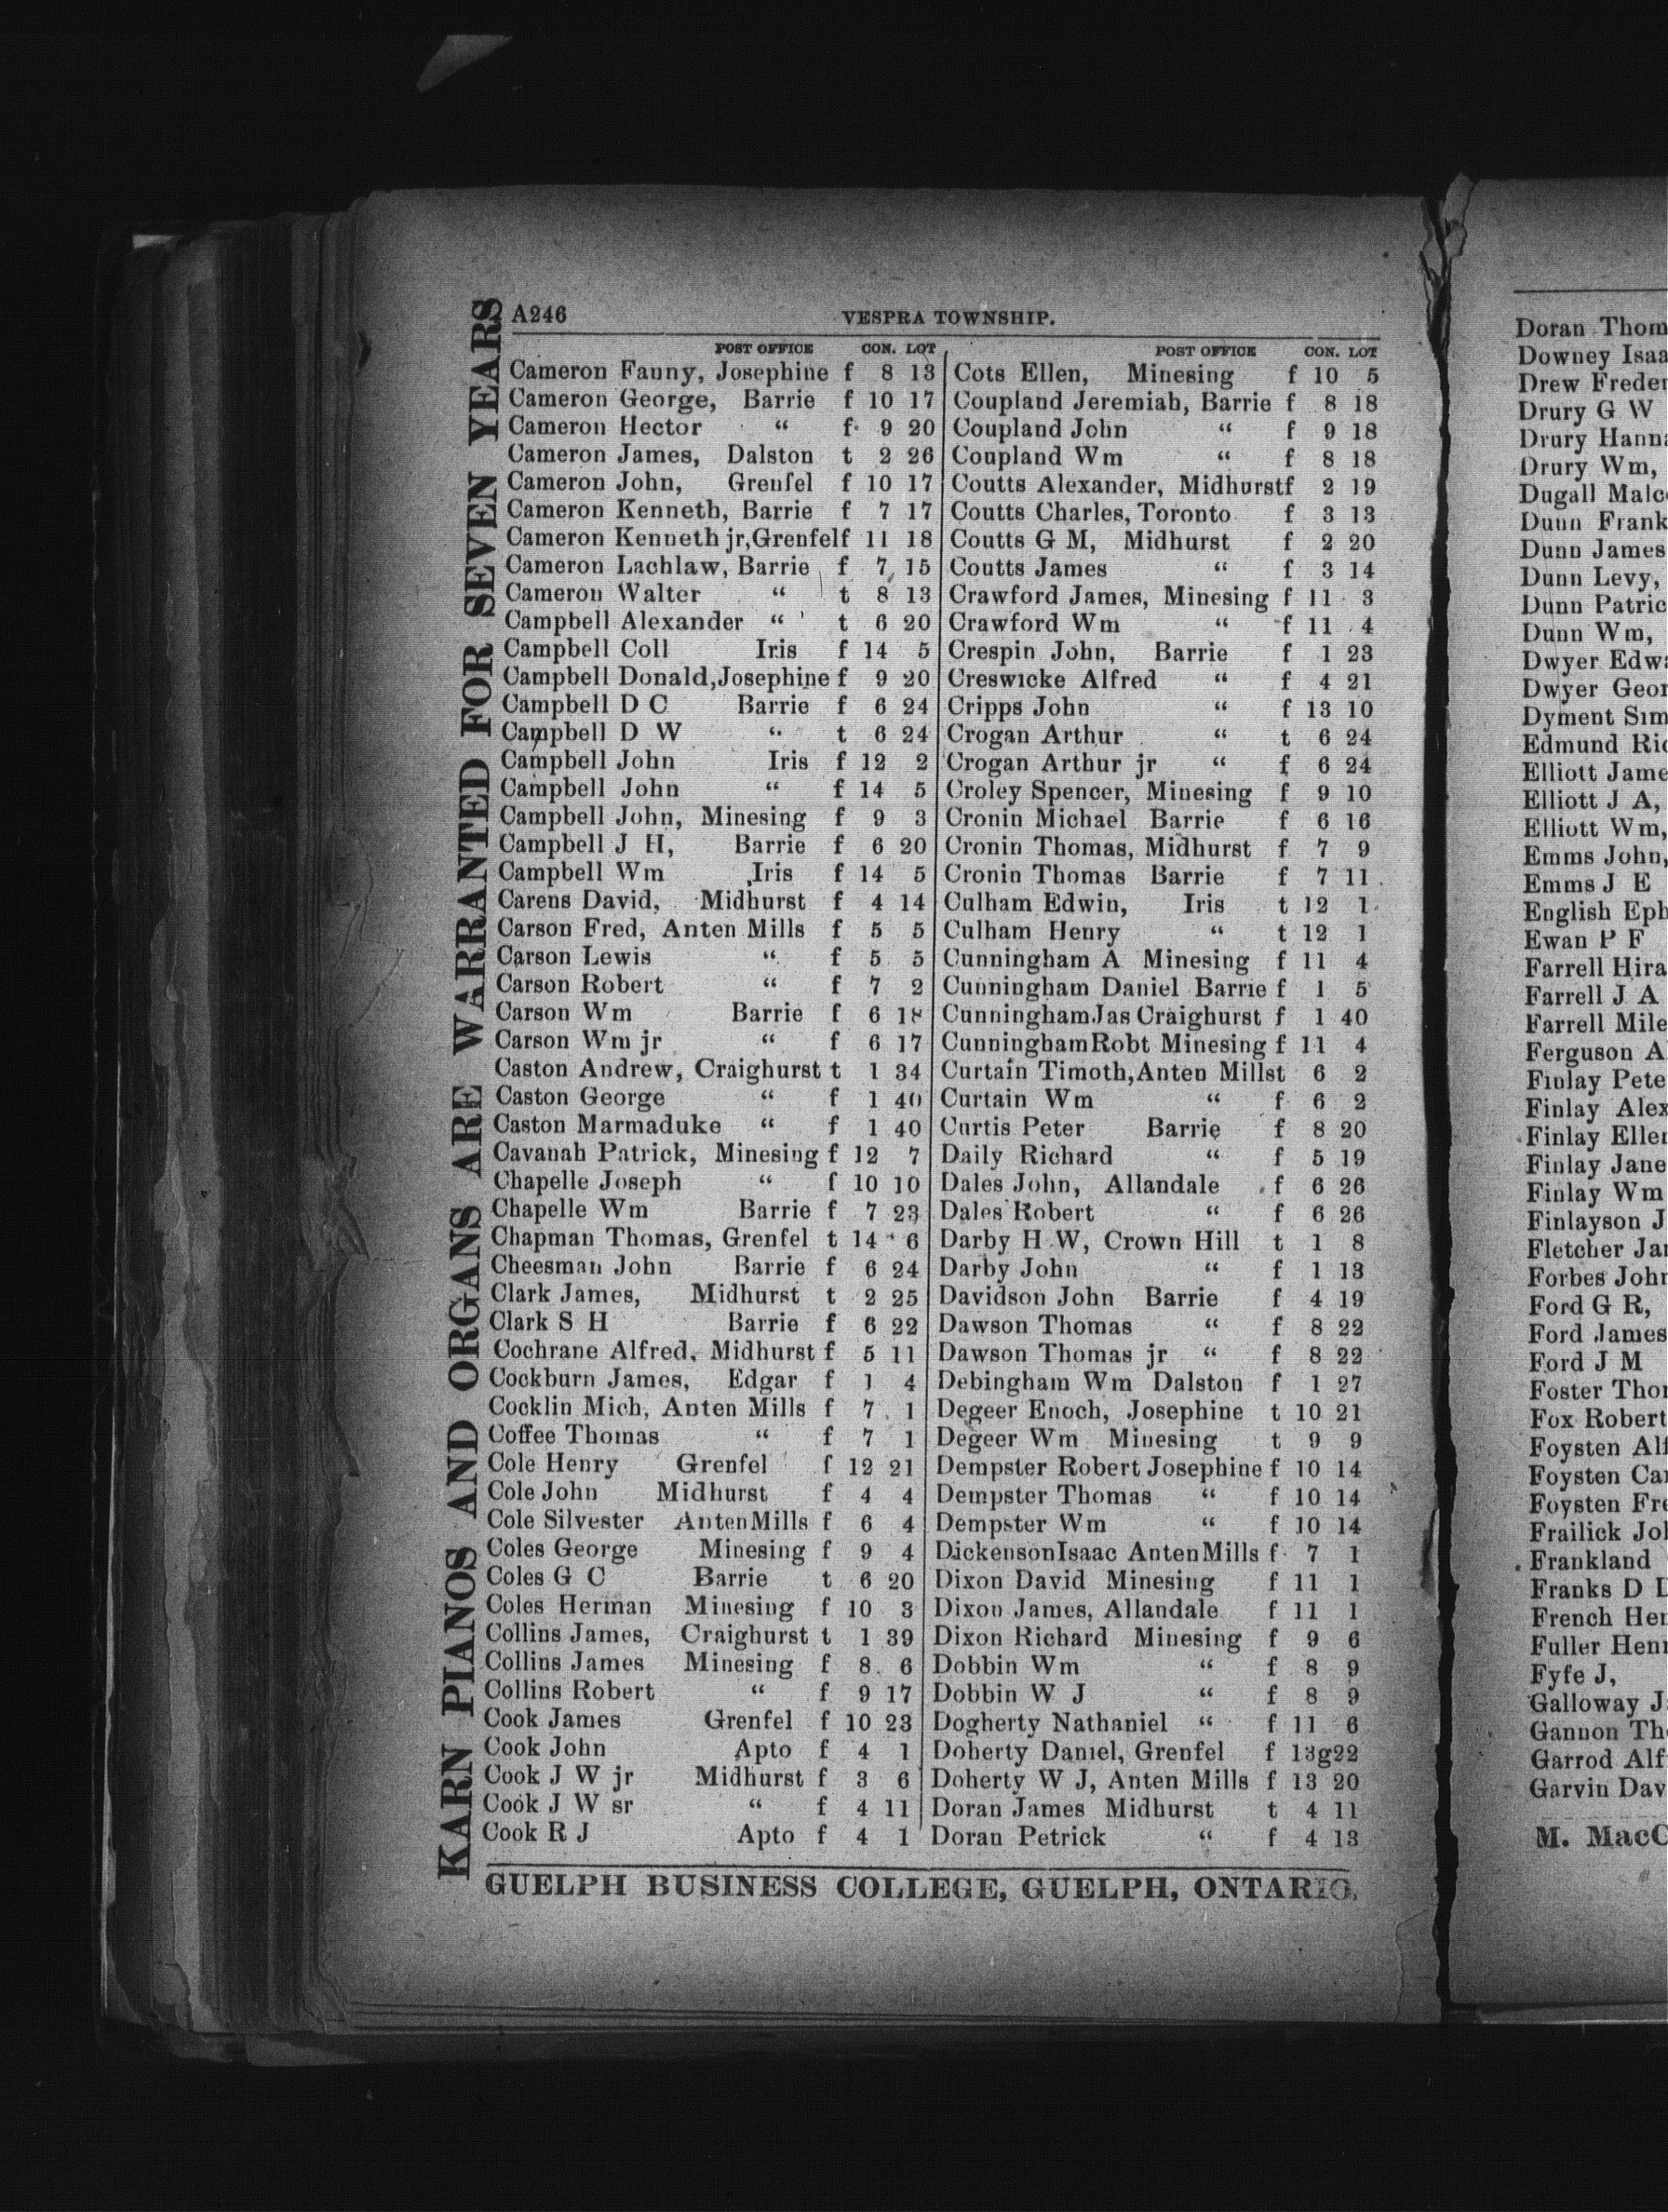 A246 VESPRA TOWNSHIP.
KARN PIANOS AND ORGANS ARE WARRANTED FOR SEVEN YEARS
POST OFFICE CON. LOT
Cameron Fanny, Josephine f 8 13
Cameron George, Barrie f 10 17
Cameron Hector “ f 9 20
Cameron James, Dalston t 2 26
Cameron John, Grenfel f 10 17
Cameron Kenneth, Barrie f 7 17
Cameron Kenneth jr,Grenfelf 11 18
Cameron Lachlaw, Barrie f 7 15
Cameron Walter “ t 8 13
Campbell Alexander “ t 6 20
Campbell Coll Iris f 14 5
Campbell Donald,Josephine f 9 20
Campbell D C Barrie f 6 24
Campbell D W “ t 6 24
Campbell John Iris f 12 2
Campbell John “ f 14 5
Campbell John, Minesing f 9 3
Campbell J H, Barrie f 6 20
Campbell Wm Iris f 14 5
Carens David, Midhurst f 4 14
Carson Fred, Anten Mills f 5 5
Carson Lewis “ f 5 5
Carson Robert “ f 7 2
Carson Wm Barrie f 6 18
Carson Wm jr “ f 6 17
Caston Andrew, Craighurst t 1 34
Caston George “ f 1 40
Caston Marmaduke “ f 1 40
Cavanah Patrick, Minesing f 12 7
Chapelle Joseph “ f 10 10
Chapelle Wm Barrie f 7 23
Chapman Thomas, Grenfel t 14 6
Cheesman John Barrie f 6 24
Clark James, Midhurst t 2 25
Clark S H Barrie f 6 22
Cochrane Alfred, Midhurst f 5 11
Cockburn James, Edgar f 1 4
Cocklin Mich, Anten Mills f 7 1
Coffee Thomas “ f 7 1
Cole Henry Grenfel f 12 21
Cole John Midhurst f 4 4
Cole Silvester AntenMills f 6 4
Coles George Minesing f 9 4
Coles G C Barrie t 6 20
Coles Herman Minesing f 10 3
Collins James, Craighurst t 1 39
Collins James Minesing f 8 6
Collins Robert “ f 9 17
Cook James Grenfel f 10 23
Cook John Apto f 4 1
Cook J W jr Midhurst f 3 6
Cook J W sr “ f 4 11
Cook R J Apto f 4 1
POST OFFICE CON. LOT
Cots Ellen, Minesing f 10 5
Coupland Jeremiah, Barrie f 8 18
Coupland John “ f 9 18
Coupland Wm “ f 8 18
Coutts Alexander, Midhurstf 2 19
Coutts Charles, Toronto f 3 13
Coutts G M, Midhurst f 2 20
Coutts James “ f 3 14
Crawford James, Minesing f 11 3
Crawford Wm “ f 11 4
Crespin John, Barrie f 1 23
Creswicke Alfred “ f 4 21
Cripps John “ f 13 10
Crogan Arthur “ t 6 24
Crogan Arthur jr “ f 6 24
Croley Spencer, Minesing f 9 10
Cronin Michael Barrie f 6 16
Cronin Thomas, Midhurst f 7 9
Cronin Thomas Barrie f 7 11
Culham Edwin, Iris t 12 1
Culham Henry “ t 12 1
Cunningham A Minesing f 11 4
Cunningham Daniel Barrie f 1 5
CunninghamJas Craighurst f 1 40
CunninghamRobt Minesing f 11 4
Curtain Timoth,Anten Millst 6 2
Curtain Wm “ f 6 2
Curtis Peter Barrie f 8 20
Daily Richard “ f 5 19
Dales John, Allandale f 6 26
Dales Robert “ f 6 26
Darby H W, Crown Hill t 1 8
Darby John “ f 1 13
Davidson John Barrie f 4 19
Dawson Thomas “ f 8 22
Dawson Thomas jr “ f 8 22
Debingham Wm Dalston f 1 27
Degeer Enoch, Josephine t 10 21
Degeer Wm Minesing t 9 9
Dempster Robert Josephine f 10 14
Dempster Thomas “ f 10 14
Dempster Wm “ f 10 14
DickensonIsaac AntenMills f 7 1
Dixon David Minesing f 11 1
Dixon James, Allandale f 11 1
Dixon Richard Minesing f 9 6
Dobbin Wm “ f 8 9
Dobbin W J “ f 8 9
Dogherty Nathaniel “ f 11 6
Doherty Daniel, Grenfel f 13g22
Doherty W J, Anten Mills f 13 20
Doran James Midhurst t 4 11
Doran Petrick “ f 4 13
GUELPH BUSINESS COLLEGE, GUELPH, ONTARIO.
Doran Thom
Downey Isaa
Drew Freder
Drury G W
Drury Hanna
Drury Wm,
Dugall Malc
Dunn Frank
Dunn James
Dunn Levy,
Dunn Patric
Dunn Wm,
Dwyer Edwa
Dwyer Geor
Dyment Sim
Edmund Ric
Elliott Jame
Elliott J A,
Elliott Wm,
Emms John,
Emms J E
English Eph
Ewan P F
Farrell Hira
Farrell J A
Farrell Mile
Ferguson A
Finlay Pete
Finlay Alex
Finlay Eller
Finlay Jane
Finlay Wm
Finlayson J
Fletcher Jar
Forbes John
Ford G R,
Ford James
Ford J M
Foster Thor
Fox Robert
Foysten Alf
Foysten Car
Foysten Fre
Frailick Jol
Frankland
Franks D
French Her
Fuller Henr
Fyfe J,
Galloway J
Gannon Th
Garrod Alf
Garvin Dav
M. MacC